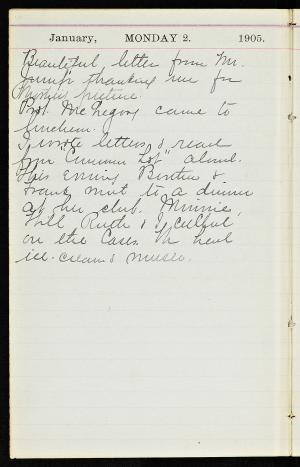 January, MONDAY 2. 1905.
Beautiful letter from Mr.
thanking me for
picture.
Prof. McGregor came to
luncheon.
I wrote letters & read
from "Common Lot" aloud.
This evening Burton &
Frank went to a dinner
at his club. Minnie,
Will, Ruth & I called
on the Cases. We had
ice-cream & music.